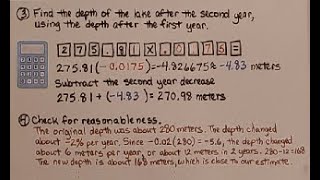 ③ Find the depth of the lake after the second year,
using the depth after the first year.
275.81 x .0175 =
275.81(-0.0175)=-4.826675≈-4.83 meters
Subtract the second year decrease
275.81 + (-4.83) = 270.98 meters
④ Check for reasonableness.
The original depth was about 280 meters. The depth changed
about -2% per year. Since -0.02(280) = -5.6, the depth changed
about 6 meters per year, or about 12 meters in 2 years. 280-12=168
The new depth is about 168 meters, which is close to our estimate.